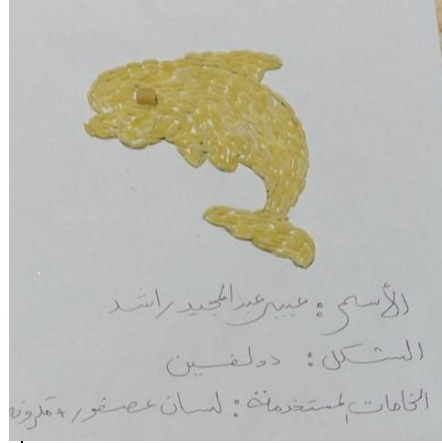 الأسم : عبير عبد المجيد راشد
الشكل : دولفين
الخامات المستخدمة : لسان عصفور + مكرونه